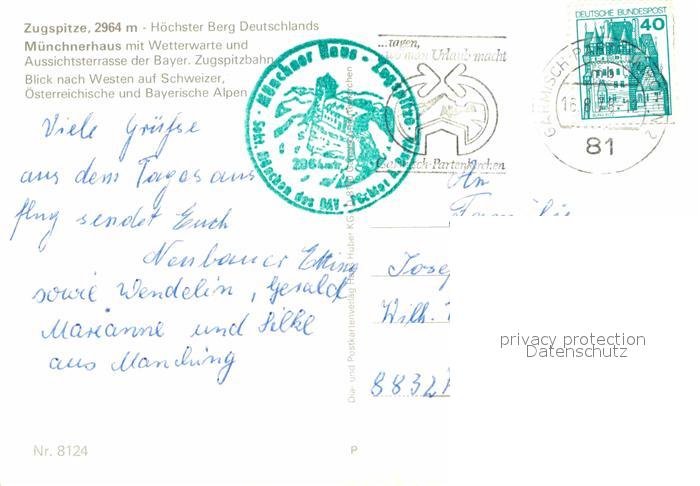 Zugspitze, 2964 m - Höchster Berg Deutschlands
Münchnerhaus mit Wetterwarte und
Aussichtsterrasse der Bayer. Zugspitzbahn
Blick nach Westen auf Schweizer,
Österreichische und Bayerische Alpen
Viele Grüße
aus dem Tages aus
flug sendet Euch
Neubauer Etting
sowie Wendelin, Gerald
Marianne und Silke
aus Manching
Nr. 8124
Münchner Haus - Zugspitze
2964 m
Sekt. München des DAV
Dia- und Postkartenverlag Huber KG
P
...tagen,
wo man Urlaub macht
Garmisch-Partenkirchen
DEUTSCHE BUNDESPOST
40
GARMISCH-PARTENKIRCHEN 2
81
An
Familie
Josef
Wilh.
8832
privacy protection
Datenschutz